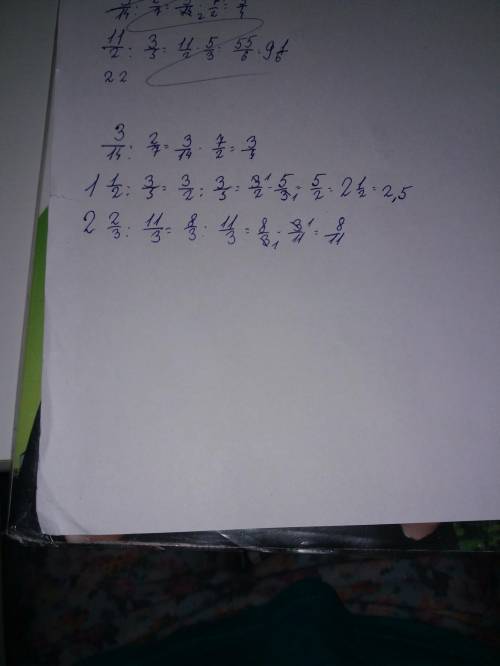 11/2 : 3/5 = 11/2 · 5/3 = 55/6 = 9 1/6
22
3/14 : 2/7 = 3/14 · 7/2 = 3/4
1 1/2 : 3/5 = 3/2 : 3/5 = 3/2 · 5/3 = 5/2 = 2 1/2 = 2,5
2 2/3 : 11/3 = 8/3 : 11/3 = 8/3 · 3/11 = 8/11